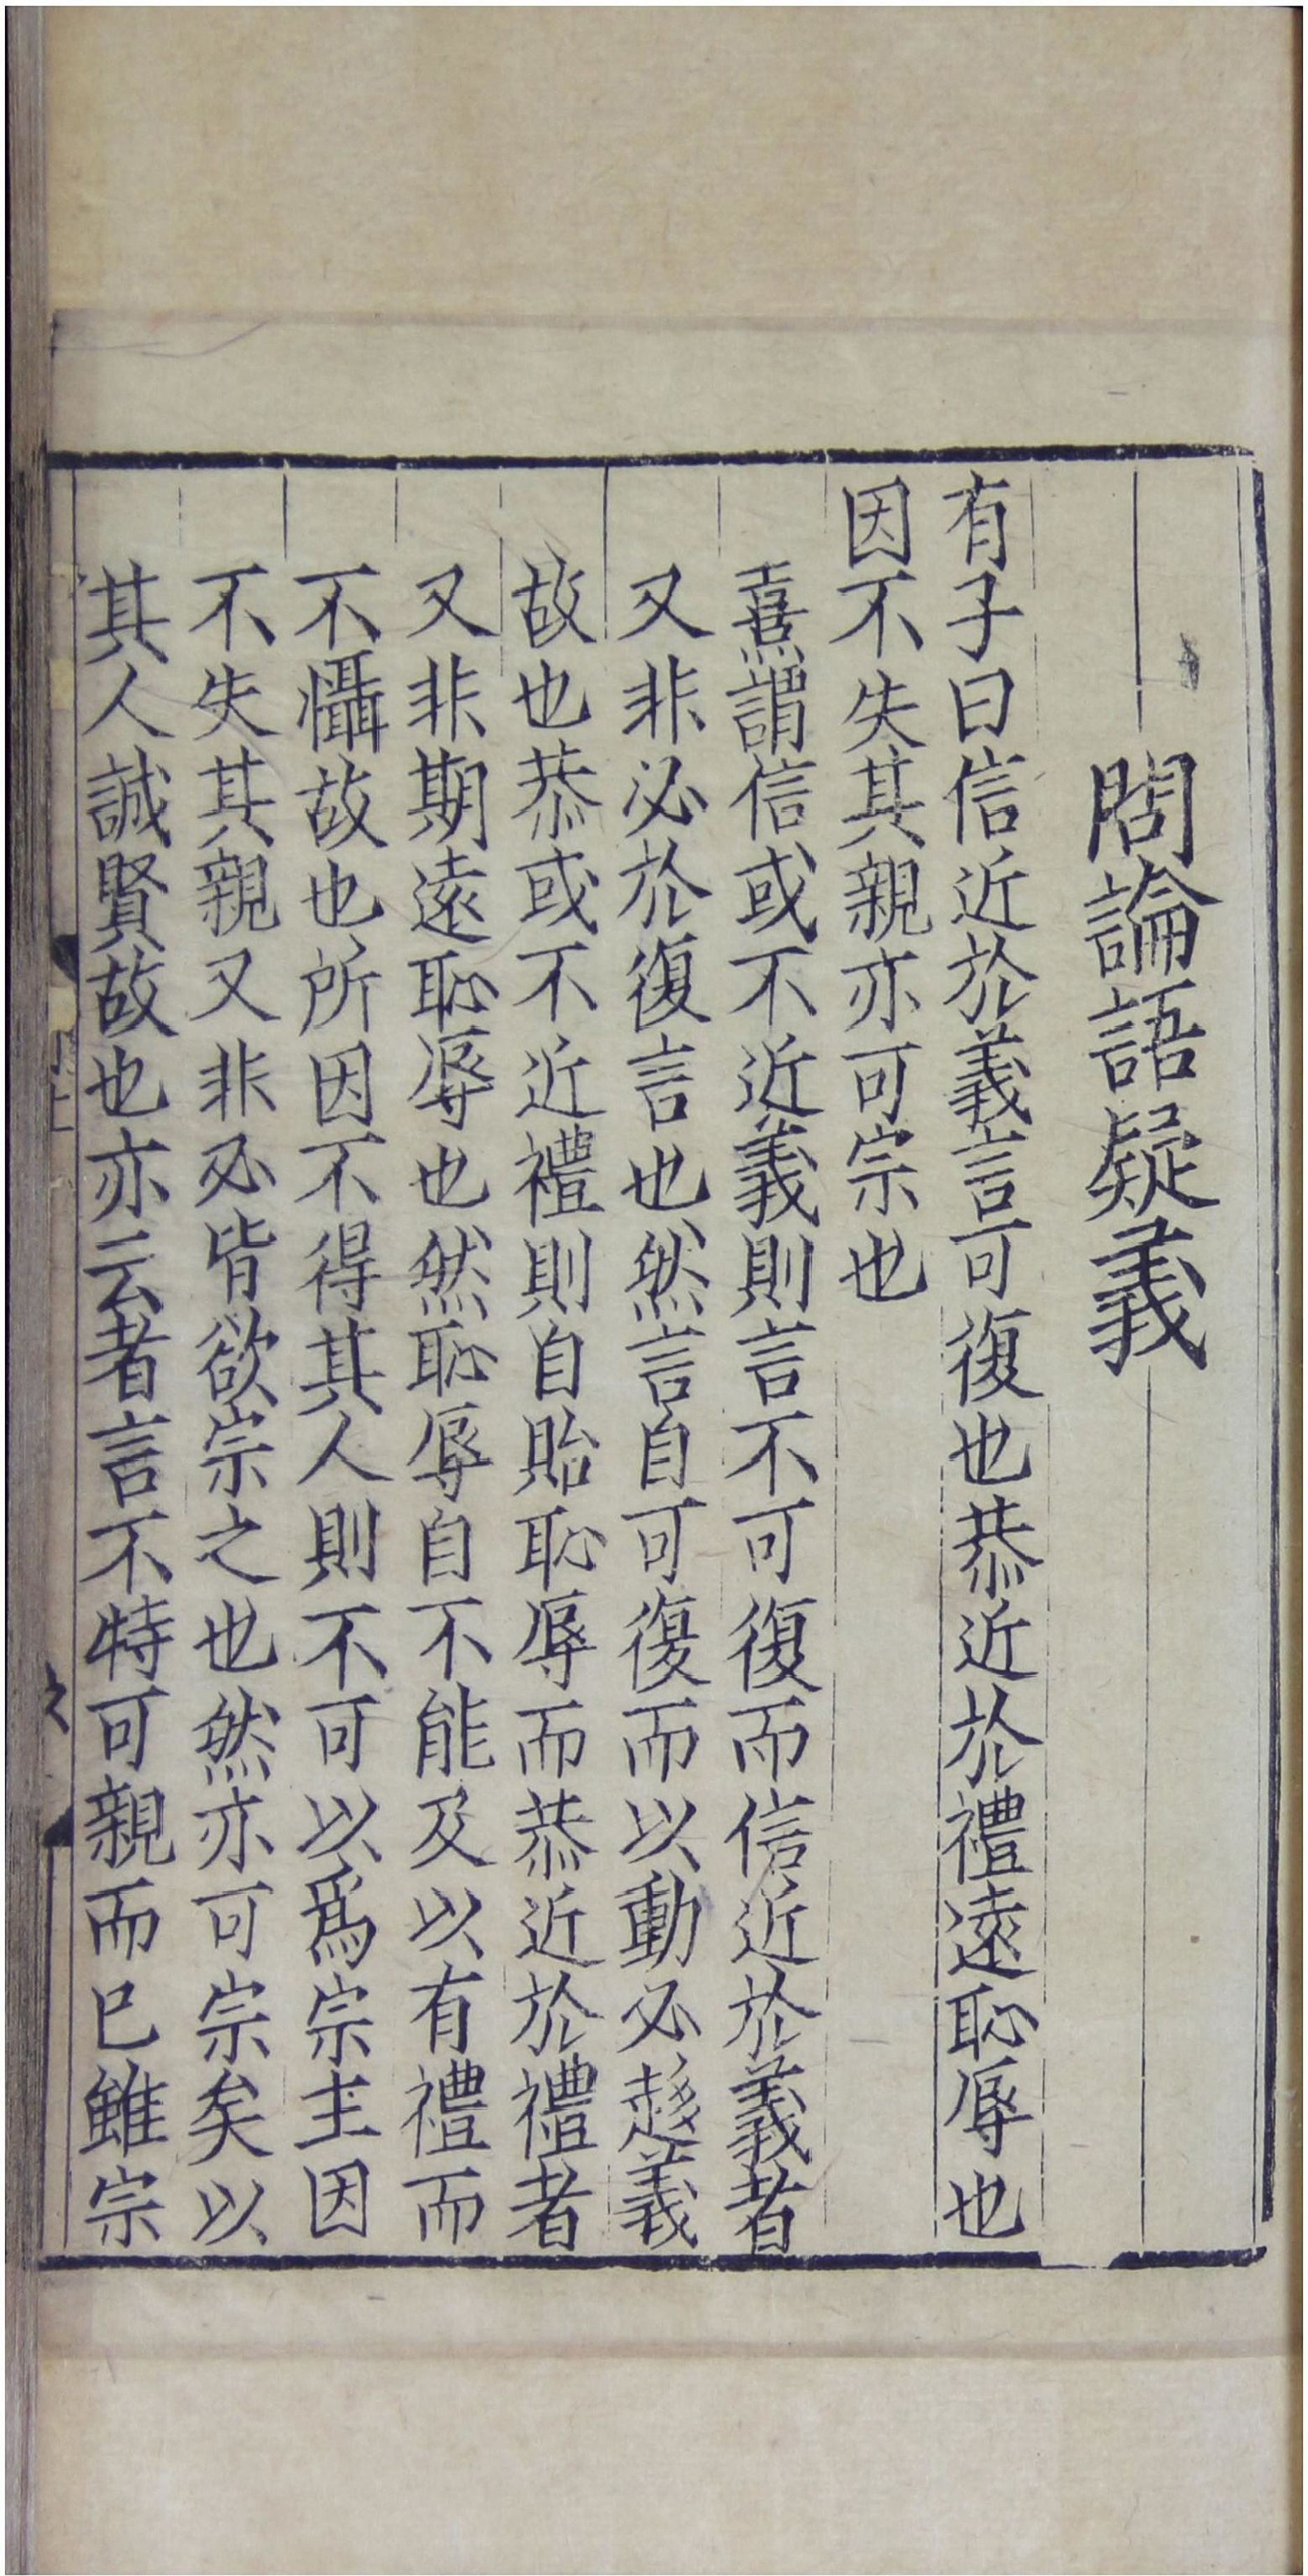 問論語疑義
有子曰信近於義言可復也恭近於禮遠恥辱也
因不失其親亦可宗也
熹謂信或不近義則言不可復而信近於義者
又非必於復言也然言自可復而以動必趍義
故也恭或不近禮則自貽恥辱而恭近於禮者
又非期遠恥辱也然恥辱自不能及以有禮而
不懾故也所因不得其人則不可以爲宗主因
不失其親又非必皆欲宗之也然亦可宗矣以
其人誠賢故也亦云者言不特可親而已雖宗